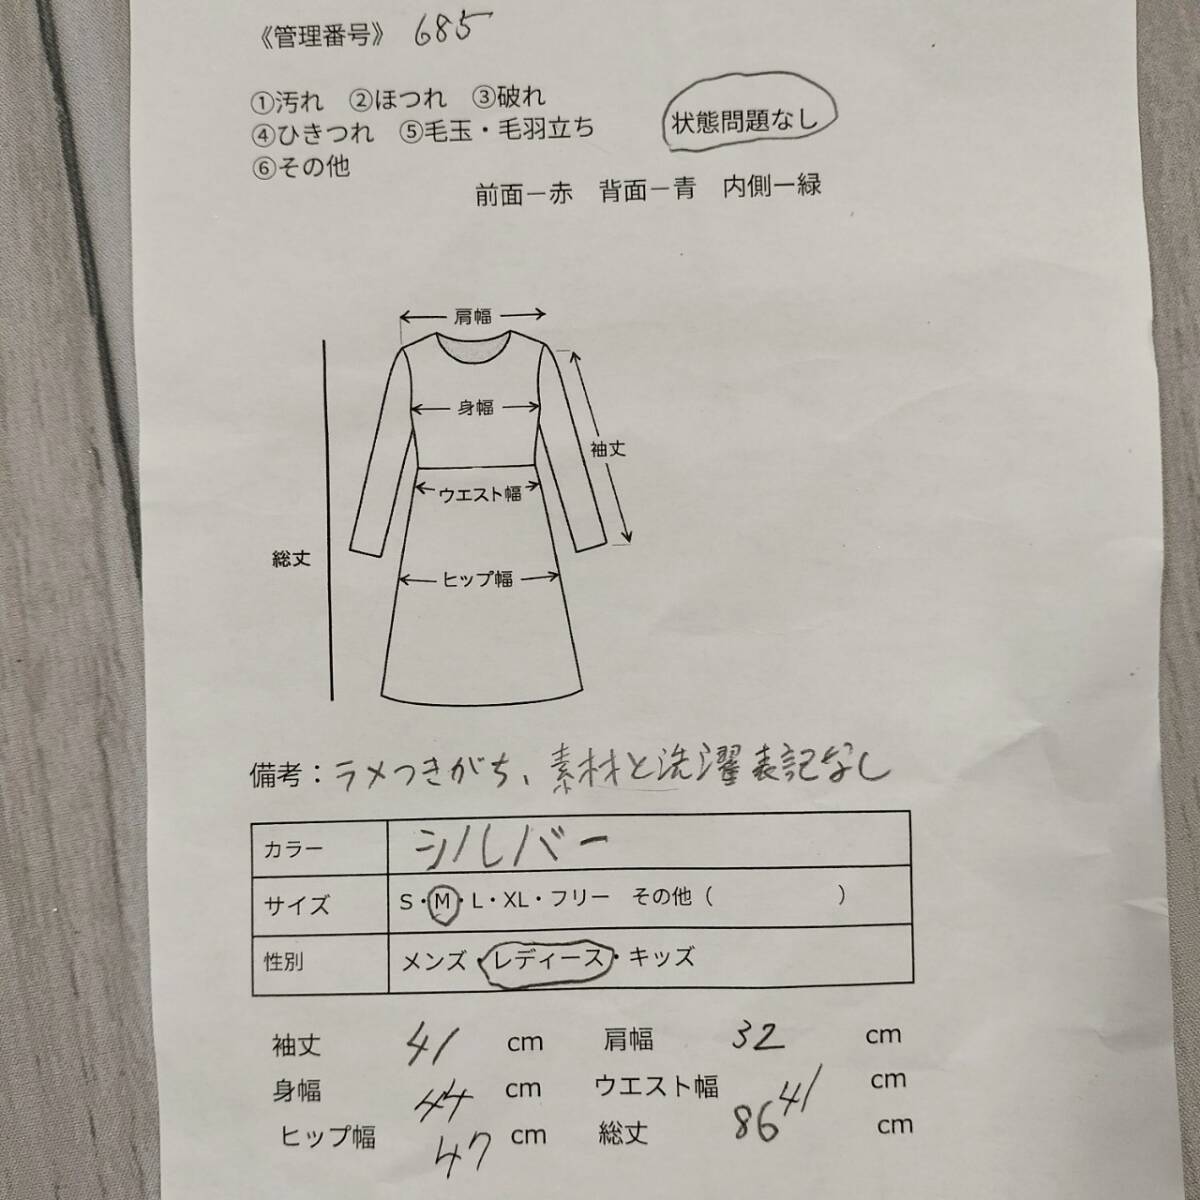 《管理番号》 685
①汚れ ②ほつれ ③破れ
④ひきつれ ⑤毛玉・毛羽立ち 状態問題なし
⑥その他
前面－赤 背面－青 内側－緑
肩幅
身幅
袖丈
ウエスト幅
総丈
ヒップ幅
備考：ラメつきがち、素材と洗濯表記なし
カラー シルバー
サイズ S・M・L・XL・フリー その他（ ）
性別 メンズ・レディース・キッズ
袖丈 41 cm 肩幅 32 cm
身幅 44 cm ウエスト幅 41 cm
ヒップ幅 47 cm 総丈 86 cm